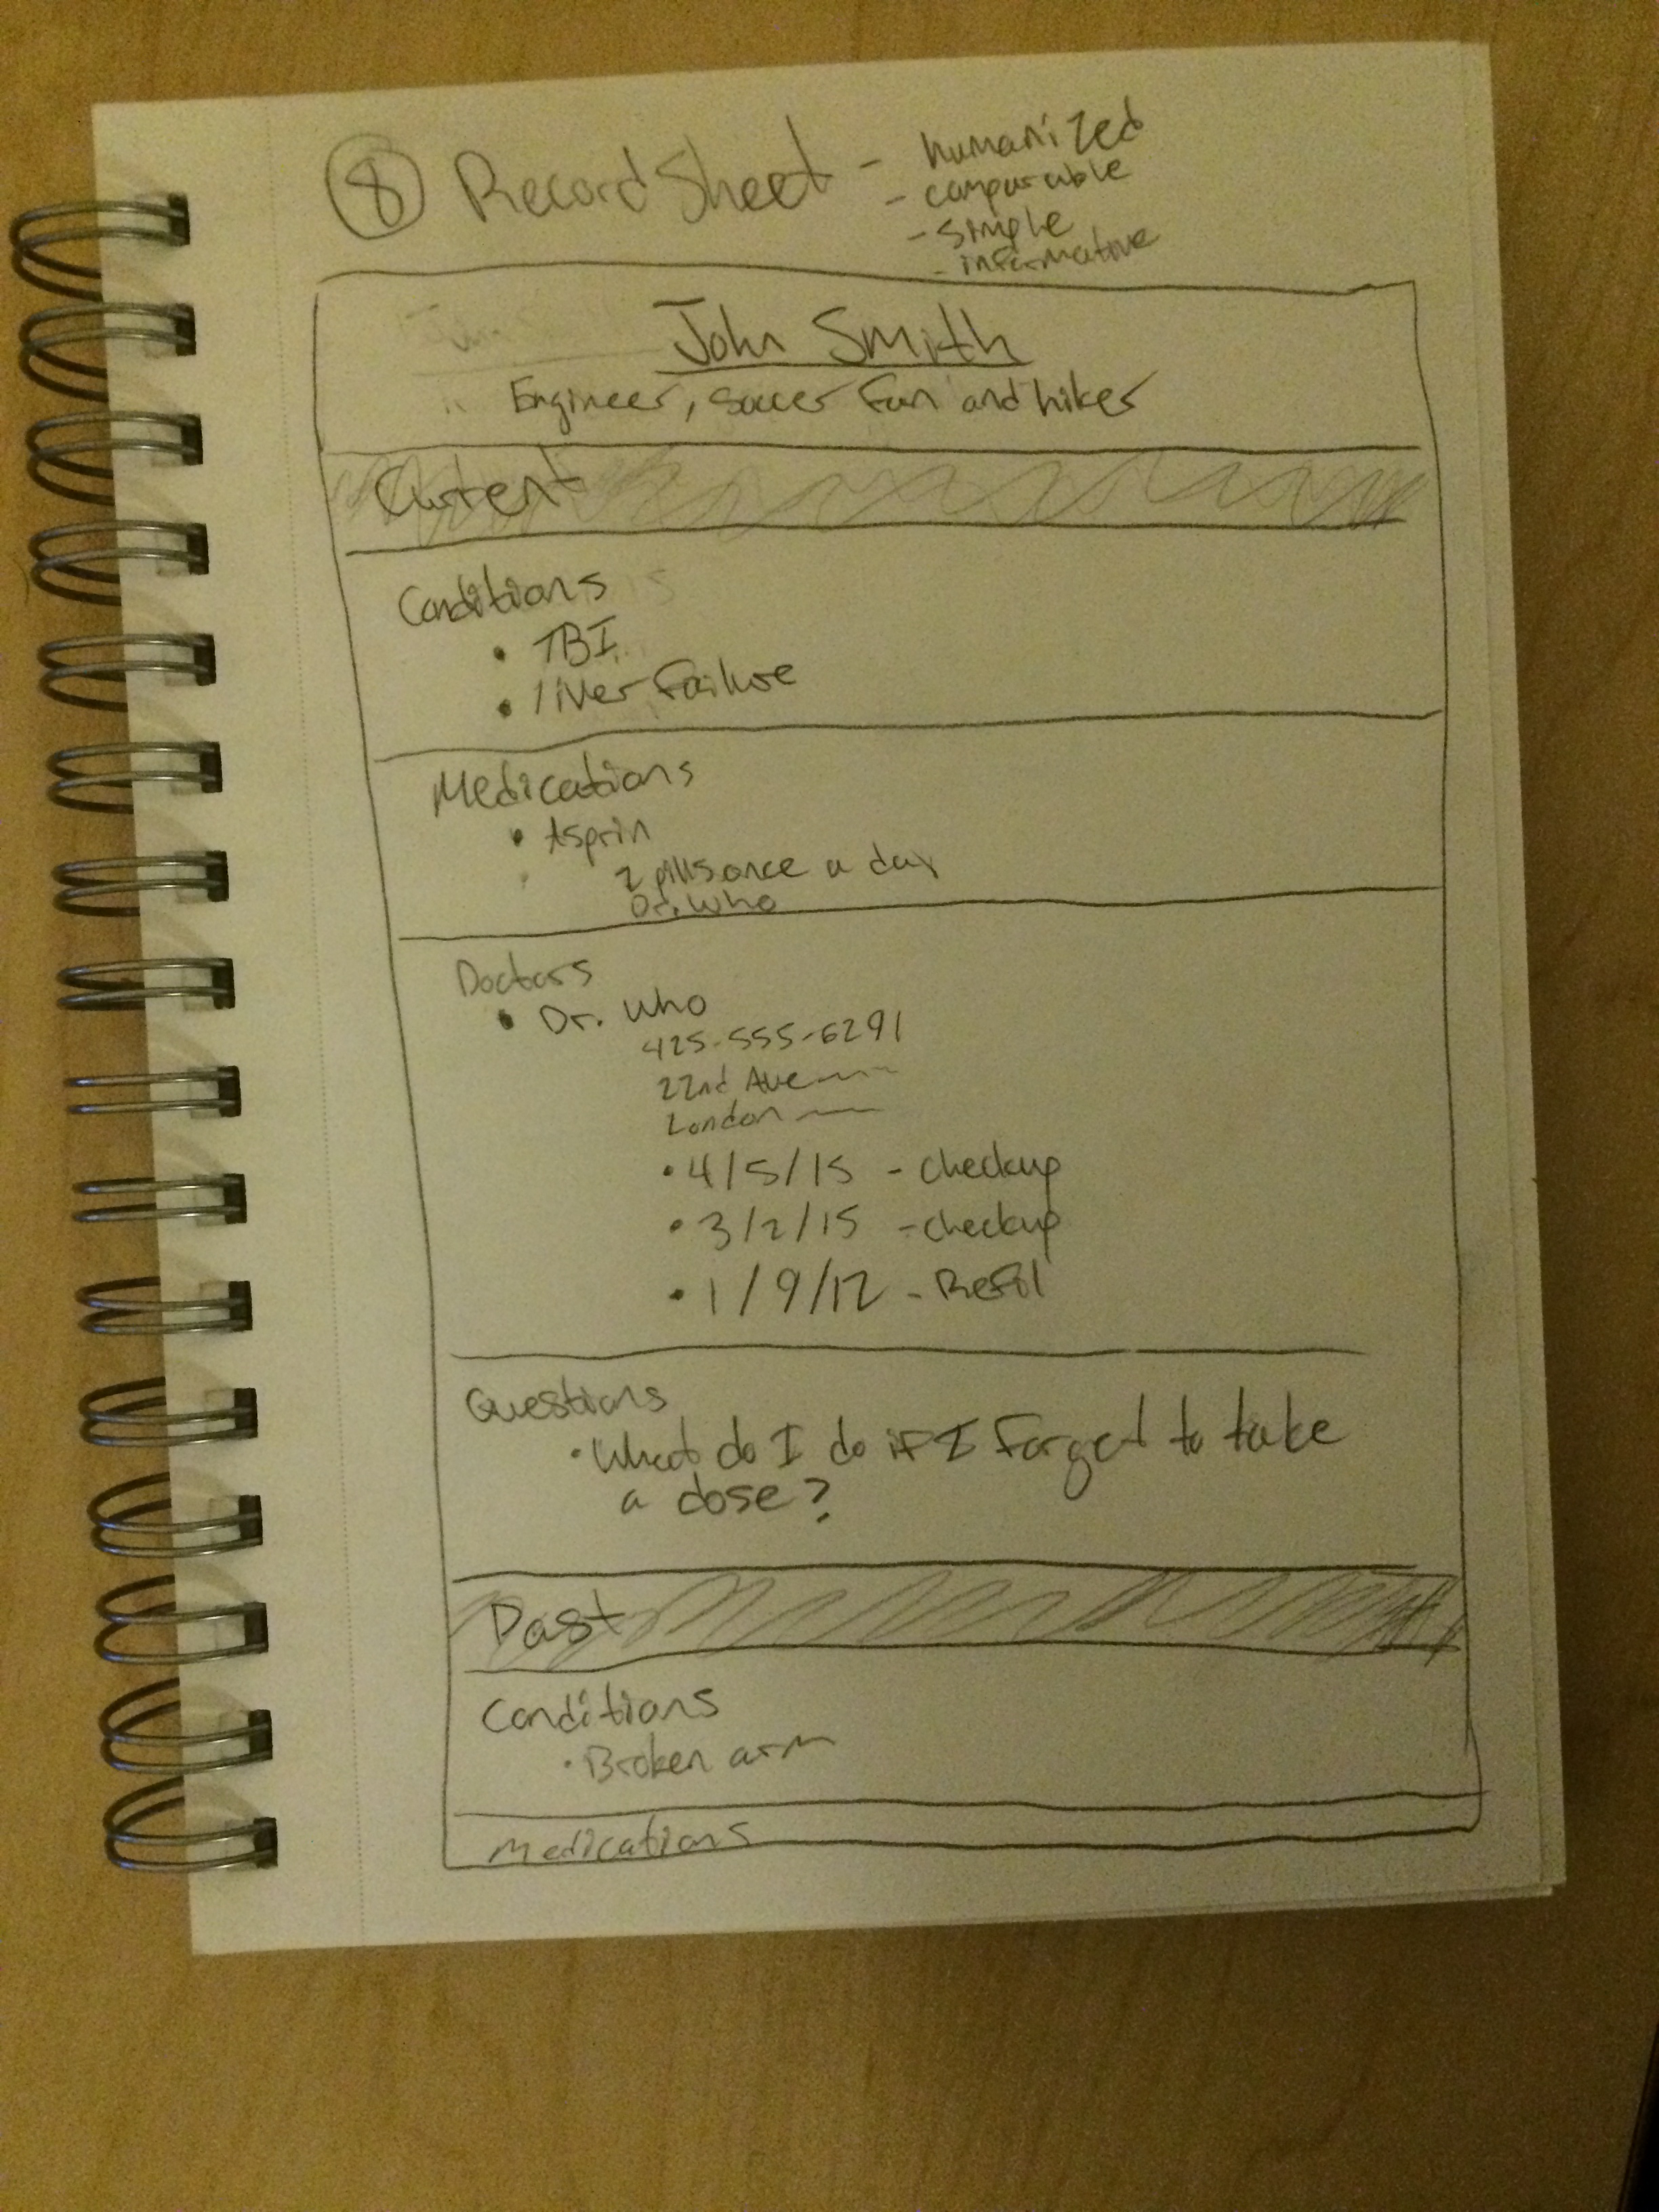 8 Record Sheet - humanized
- comparable
- simple
- informative
John Smith
Engineer, soccer fan and hiker
Current
Conditions
• TBI
• liver failure
Medications
• Asprin
2 pills once a day
Dr. Who
Doctors
• Dr. Who
425-555-6291
22nd Ave
London
• 4/5/15 - checkup
• 3/2/15 - checkup
• 1/9/12 - Refil
Questions
• What do I do if I forget to take
a dose?
Past
Conditions
• Broken arm
Medications